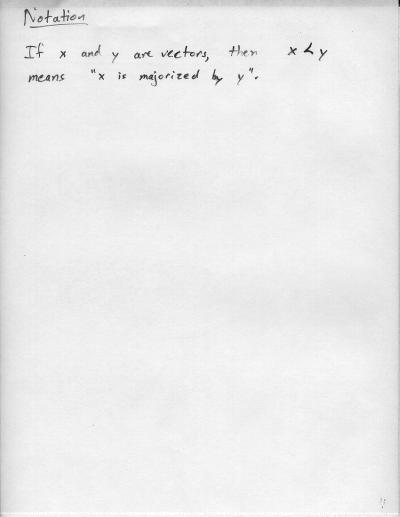 Notation
If x and y are vectors, then x < y
means "x is majorized by y".